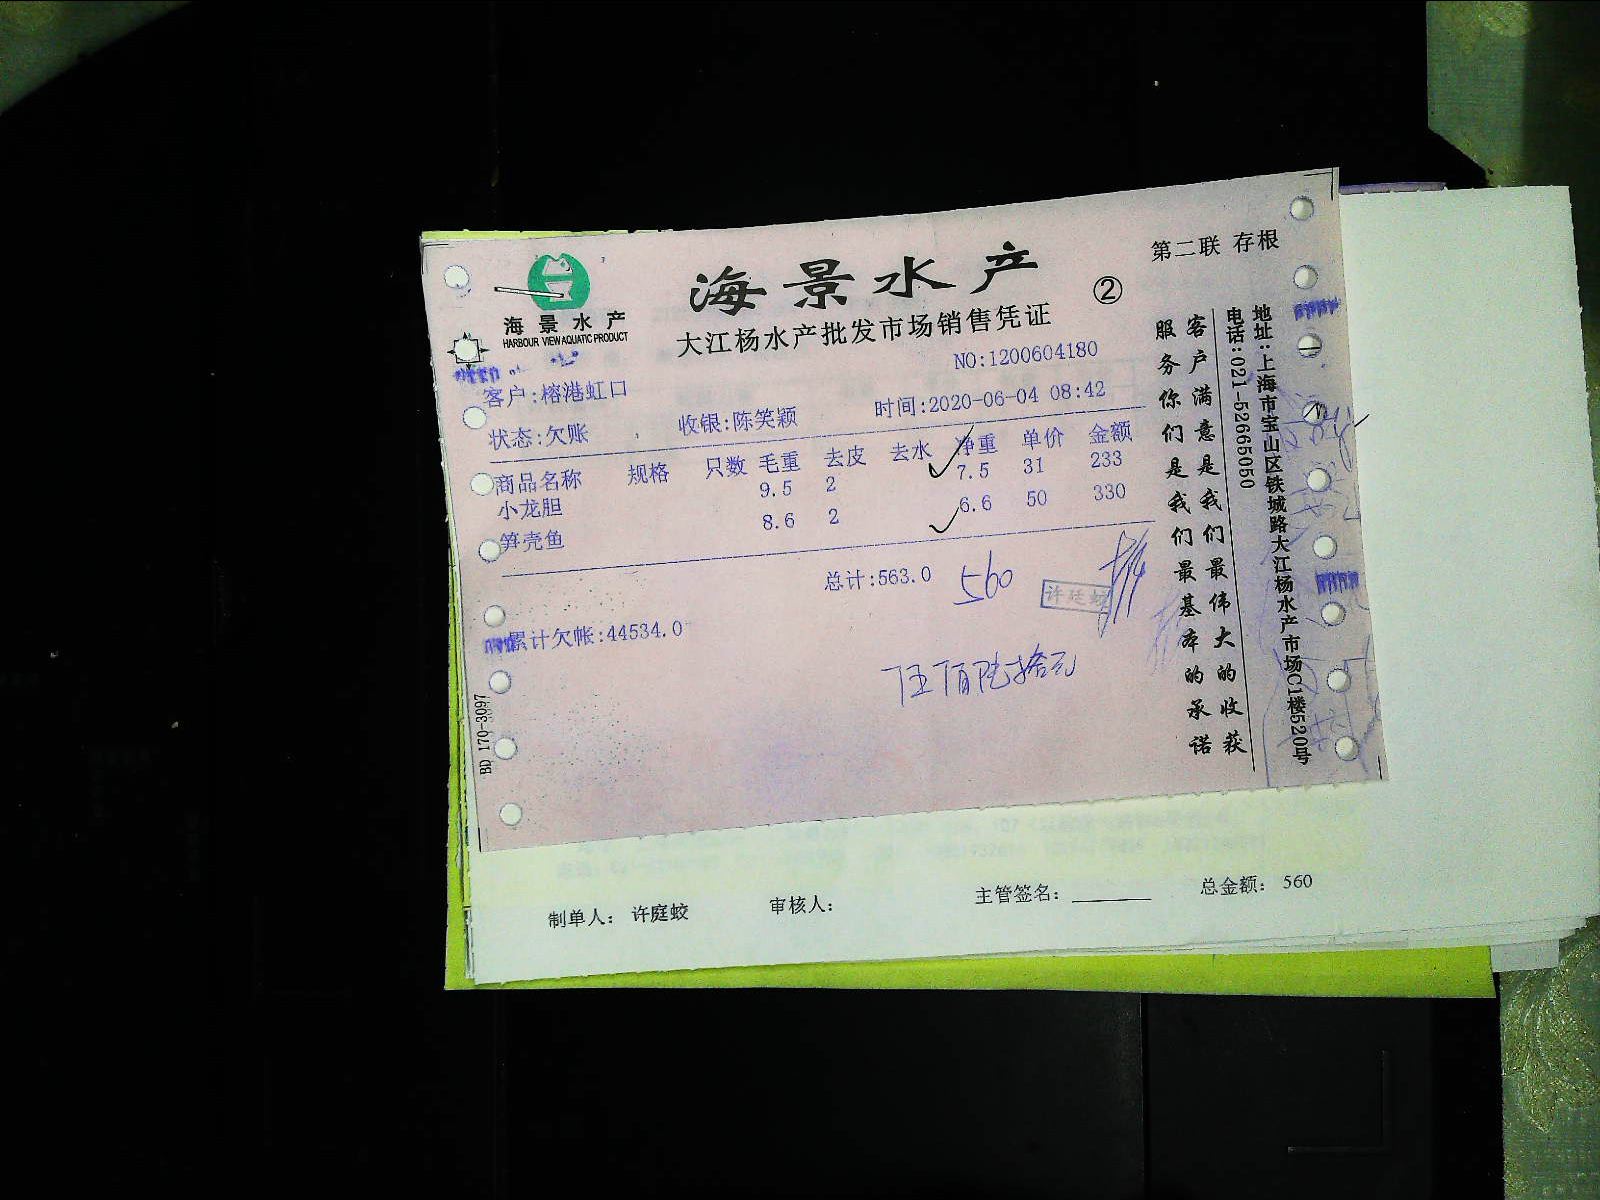 第二联 存根
海景水产
②
海景水产
HARBOUR VIEW AQUATIC PRODUCT
大江杨水产批发市场销售凭证
NO:1200604180
客户:榕港虹口
收银:陈笑颖
时间:2020-06-04 08:42
状态:欠账
商品名称 规格 只数 毛重 去皮 去水 净重 单价 金额
小龙胆 9.5 2 7.5 31 233
笋壳鱼 8.6 2 6.6 50 330
总计:563.0
560
许廷蛟
累计欠帐:44534.0
伍佰陆拾元
BD 170-3097
客户满意是我们最伟大的收获
服务你们是我们最基本的承诺
地址:上海市宝山区铁城路大江杨水产市场C1楼520号
电话:021-52665050
制单人: 许庭蛟
审核人:
主管签名:
总金额: 560